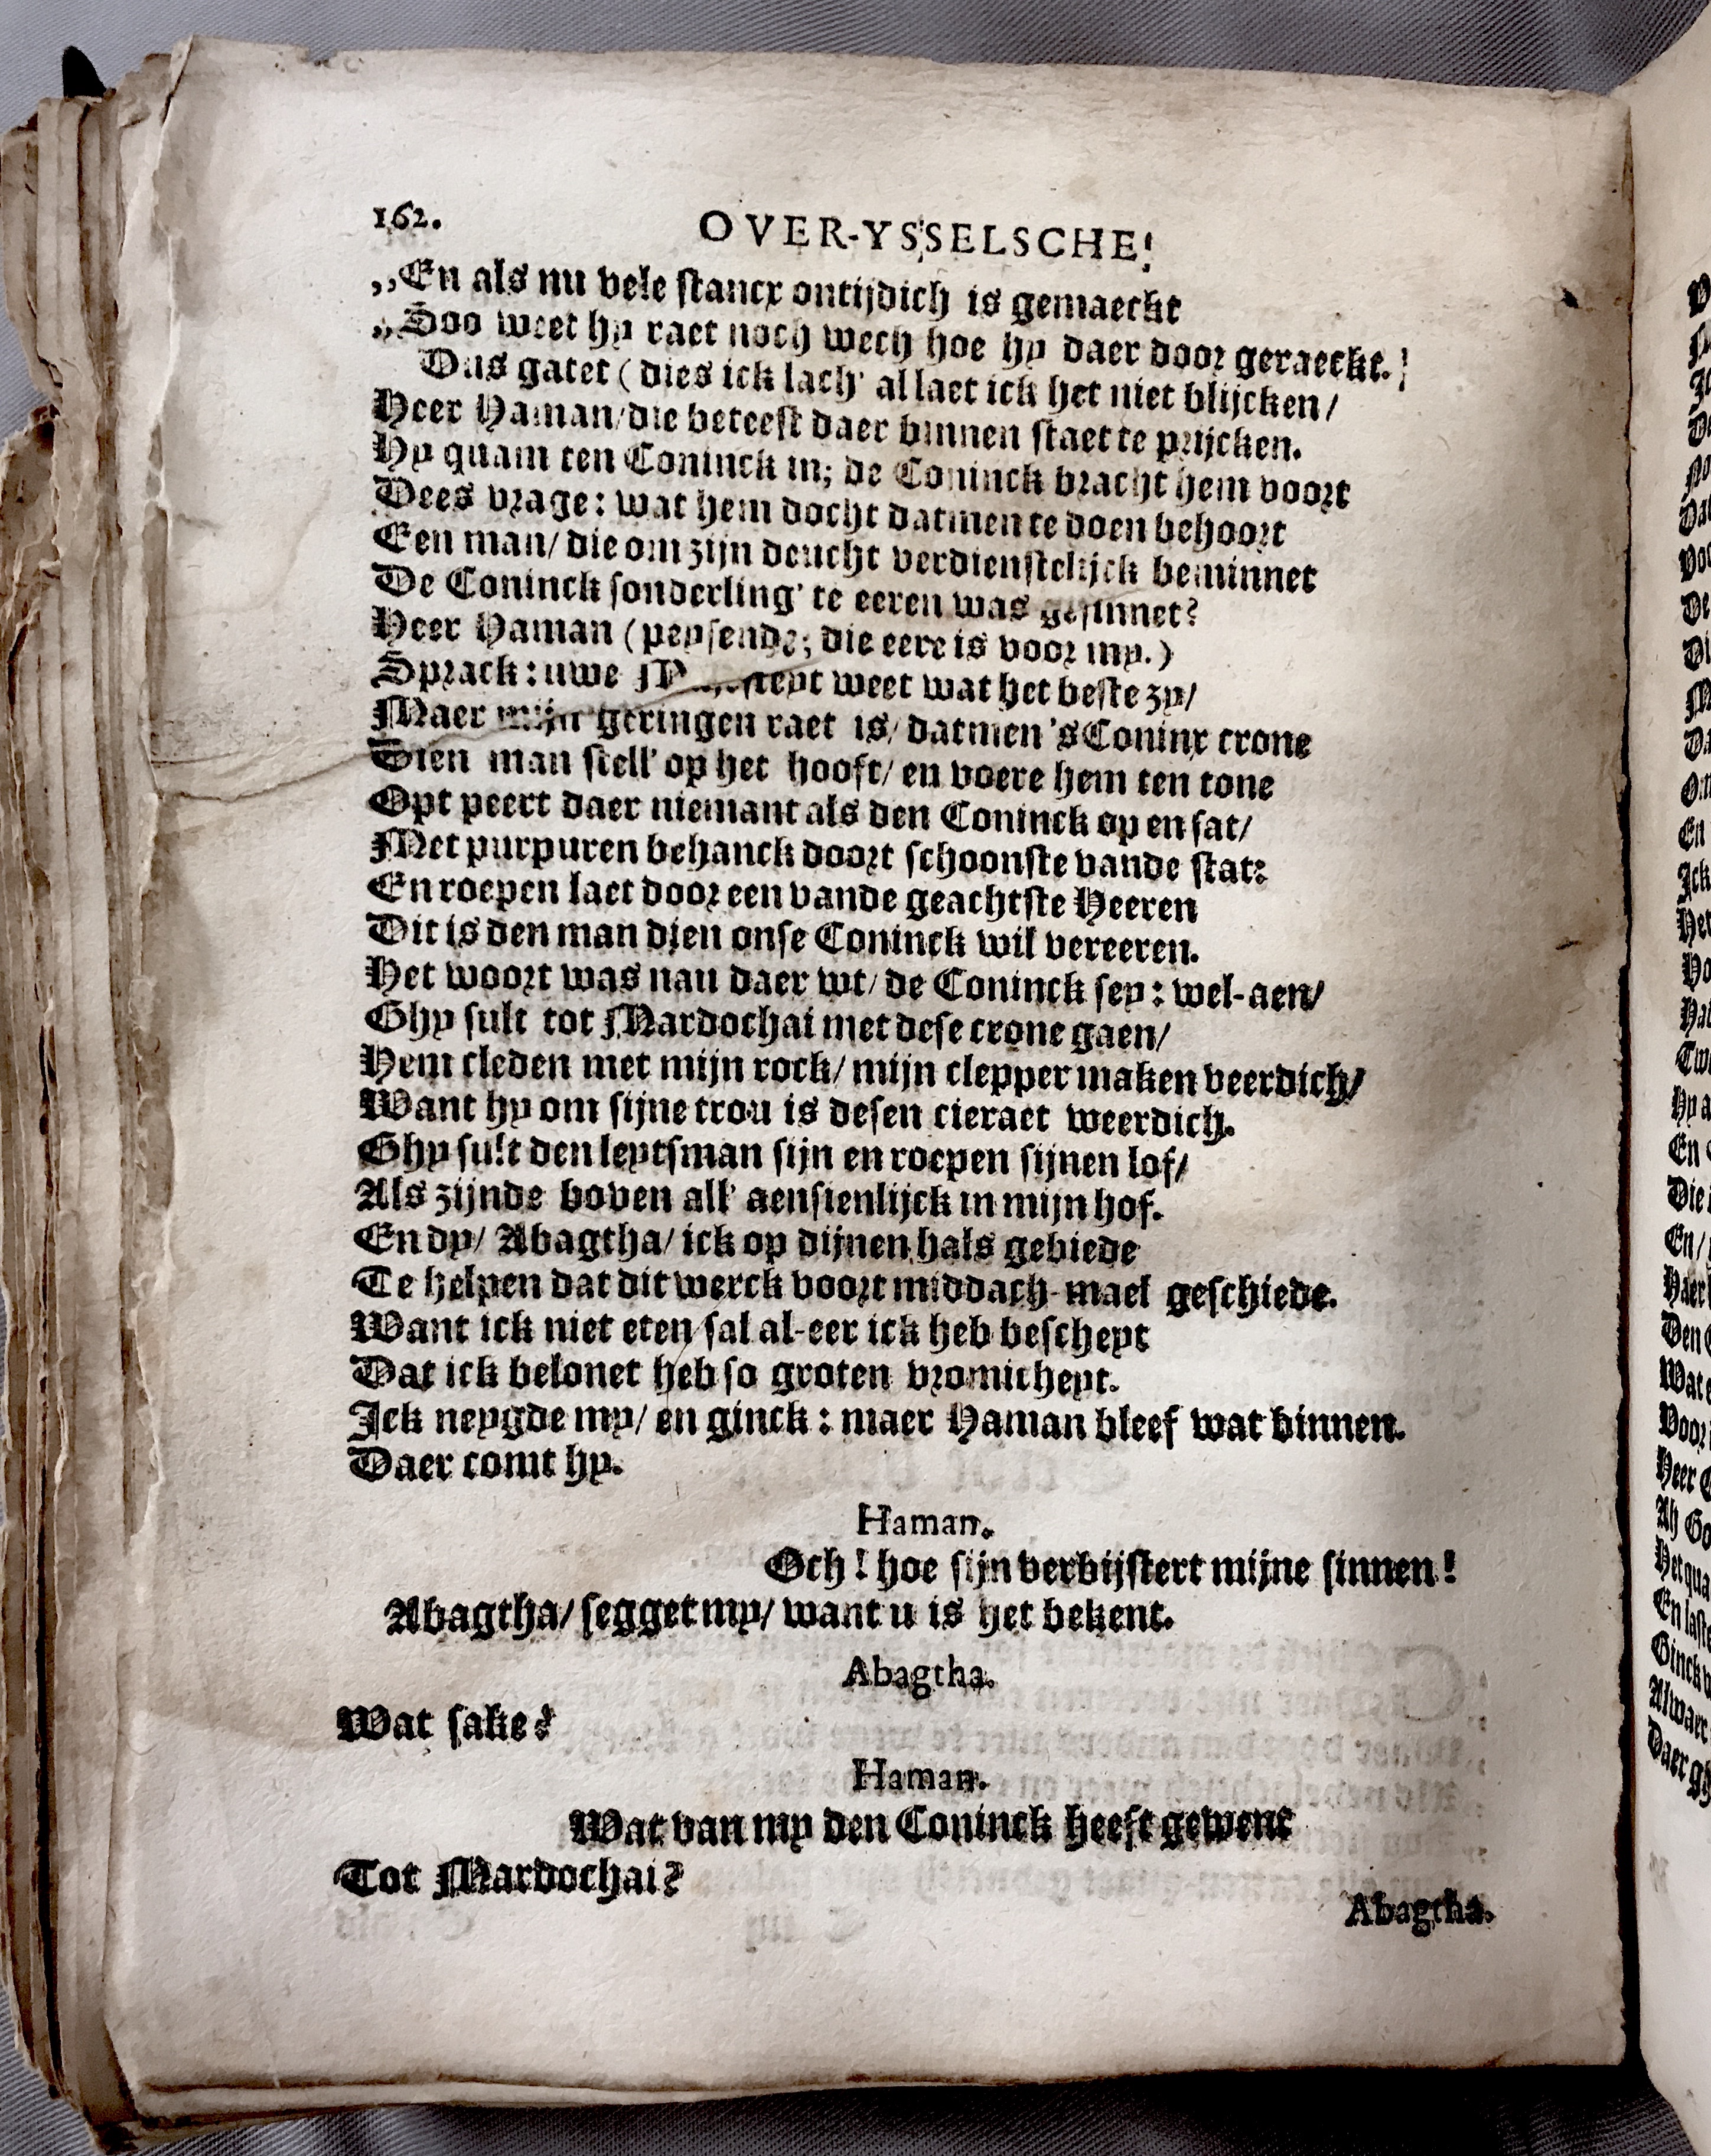 162.
OVER-YSSELSCHE!
„En als nu vele stancx ontijdich is gemaeckt
„Soo weet hy raet noch wech hoe hy daer door geraeckt.
Dus gatet (dies ick lach' al laet ick het niet blijcken/
Heer Haman/ die beteest daer binnen staet te prijcken.
Hy quam ten Coninck in; de Coninck bracht hem voort
Dees vrage: wat hem docht datmen te doen behoort
Een man/ die om zijn deucht verdienstelijck beminnet
De Coninck sonderling' te eeren was gesinnet?
Heer Haman (peysende; die eere is voor my.)
Sprack: uwe weet wat het beste zy/
Maer mijn geringen raet is/ datmen 's Coninx crone
Dien man stell' op het hooft/ en voere hem ten tone
Opt peert daer niemant als den Coninck op en sat/
Met purpuren behanck doort schoonste vande stat:
En roepen laet door een vande geachtste Heeren
Dit is den man dien onse Coninck wil vereeren.
Het woort was nau daer wt/ de Coninck sey: wel-aen/
Ghy sult tot Mardochai met dese crone gaen/
Hem cleden met mijn rock/ mijn clepper maken veerdich/
Want hy om sijne trou is desen cieraet weerdich.
Ghy sult den leytsman sijn en roepen sijnen lof/
Als zijnde boven all' aensienlijck in mijn hof.
En dy/ Abagtha/ ick op dijnen hals gebiede
Te helpen dat dit werck voort middach-mael geschiede.
Want ick niet eten sal al-eer ick heb bescheyt
Dat ick belonet heb so groten vromicheyt.
Ick neygde my/ en ginck: maer Haman bleef wat binnen.
Daer comt hy.
Haman.
Och! hoe sijn verbijstert mijne sinnen!
Abagtha/ segget my/ want u is het bekent.
Abagtha.
Wat sake?
Haman.
Wat van my den Coninck heeft gewent
Tot Mardochai?
Abagtha.